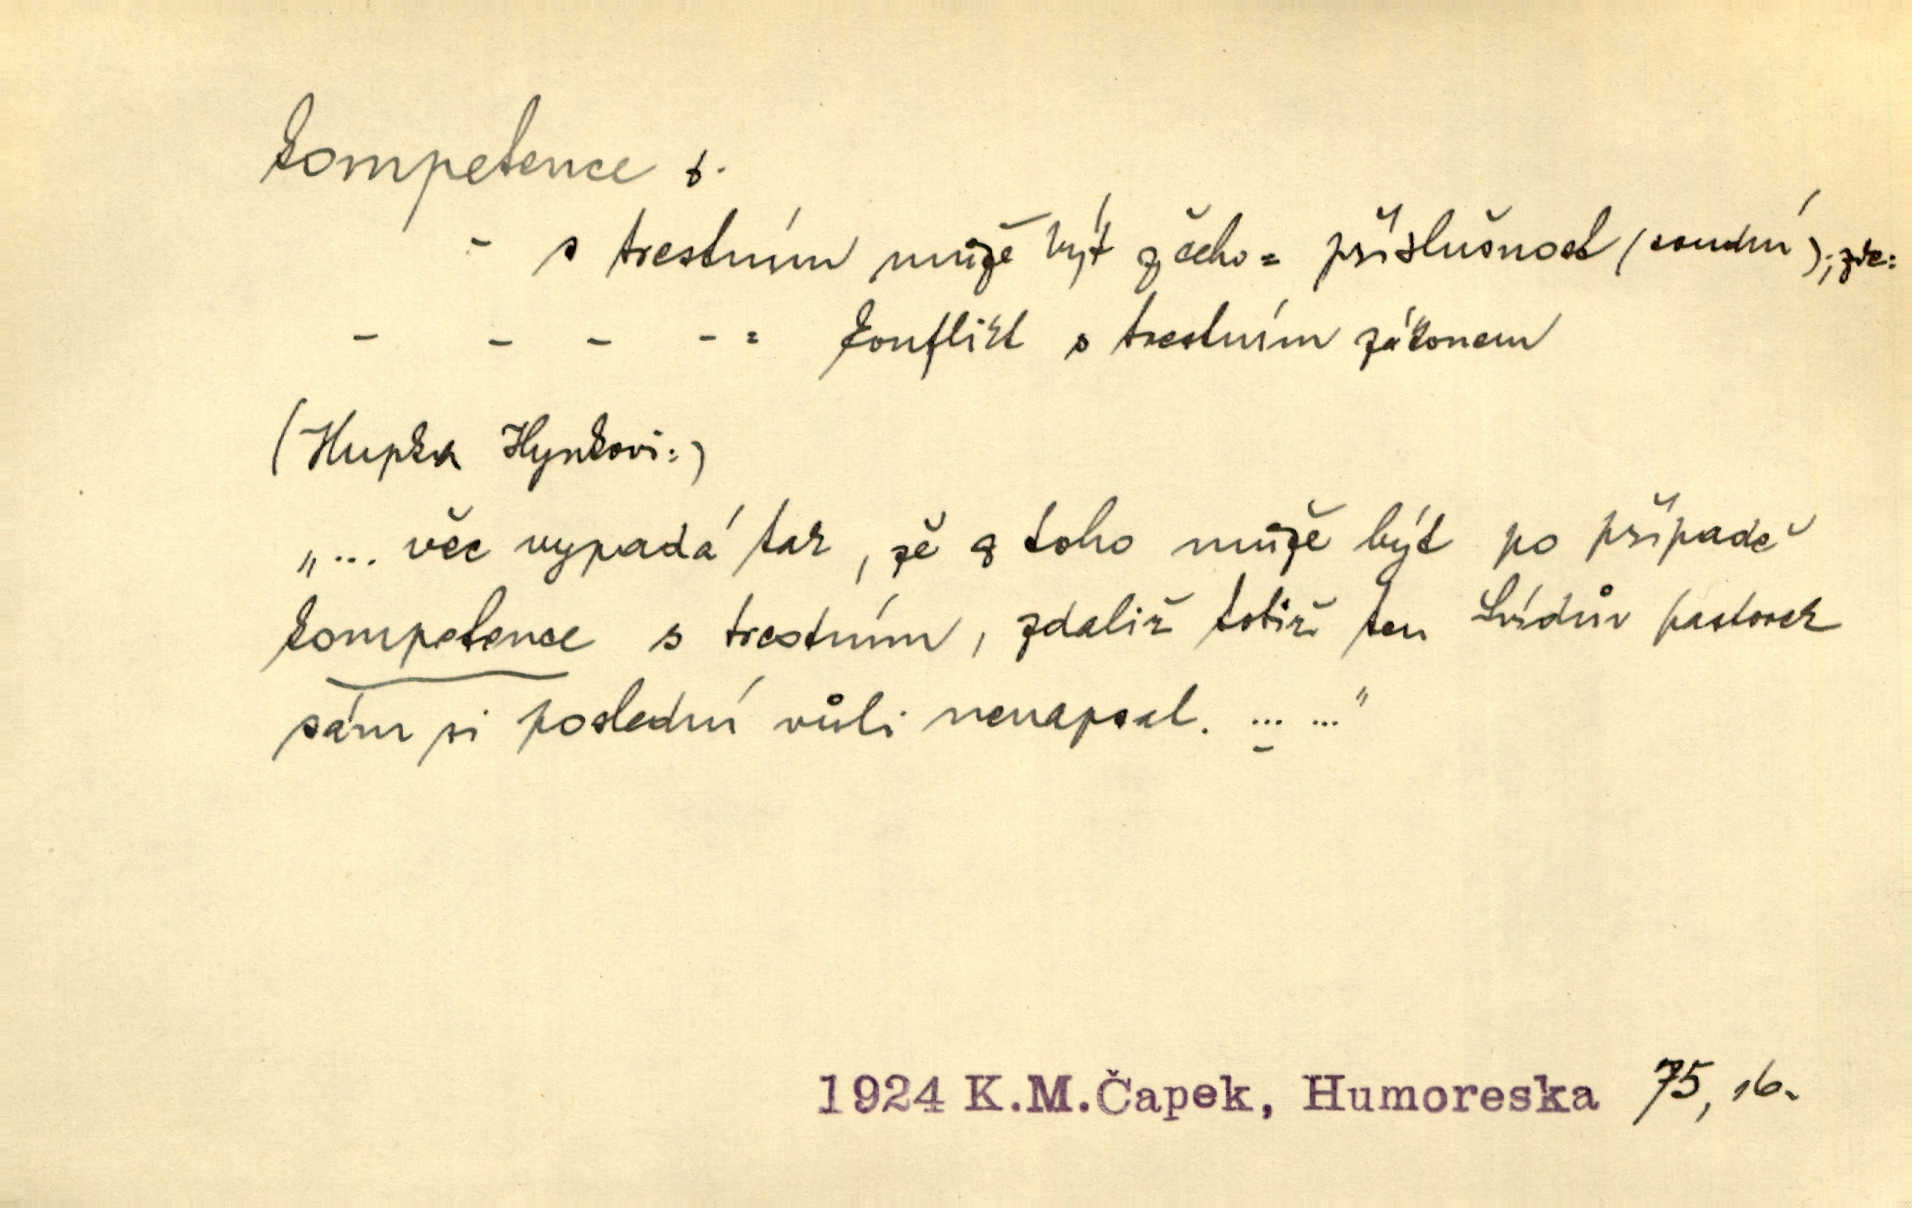 kompetence f.
– s trestním může být z čeho = příslušnost (soudní); zde:
– – – – = konflikt s trestním zákonem
(Hupka Hynkovi:)
„... věc vypadá tak, že z toho může být po případě
kompetence s trestním, zdaliž totiž ten Lvídův pastorek
sám si poslední vůli nenapsal. ... ..."
1924 K.M.Čapek, Humoreska 75, 16.